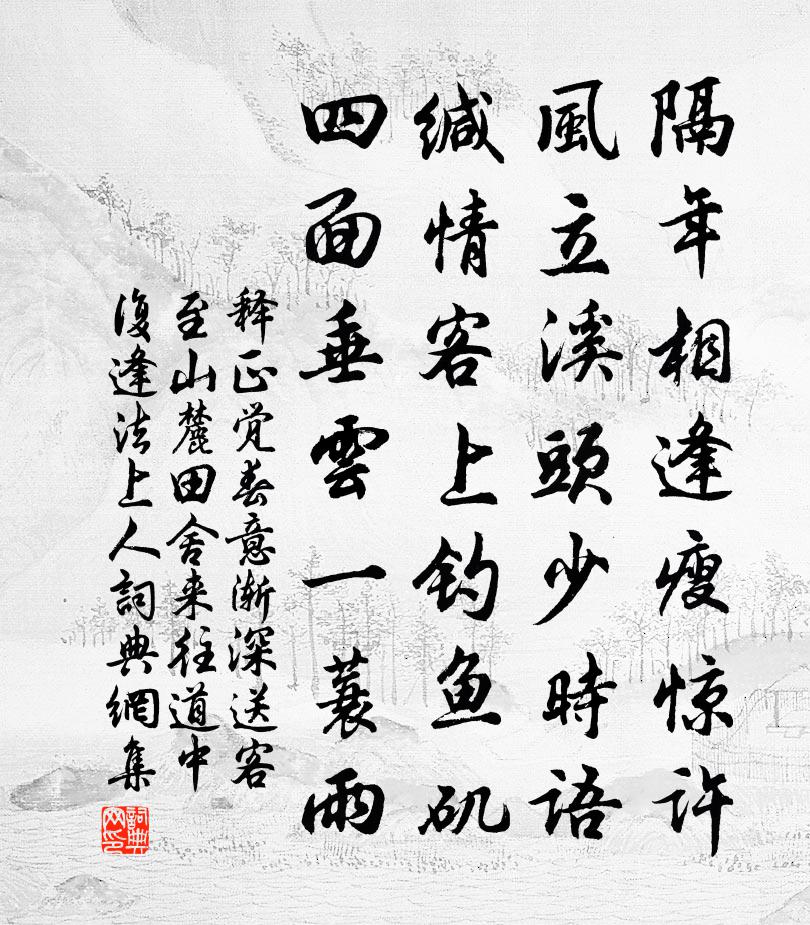 隔年相逢瘦惊许
風立溪頭少時語
缄情客上钓鱼矶
四面垂雲一蓑雨
释正觉春意渐深送客
至山麓田舍来往道中
復逢法上人詞典網集
詞典网印